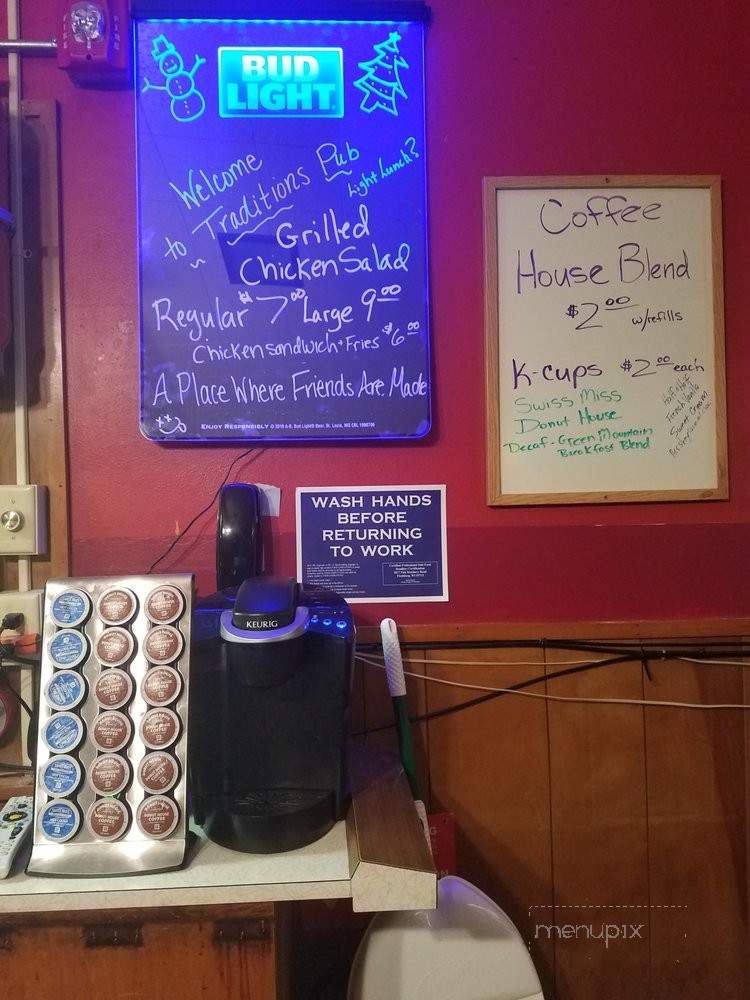 FIRE
FIRE
BUD
LIGHT
Welcome
to Traditions Pub
Light Lunch?
Grilled
Chicken Salad
Regular $7.00 Large 9.00
Chicken sandwich + Fries $6.00
A Place Where Friends Are Made
ENJOY RESPONSIBLY
Coffee
House Blend
$2.00 w/refills
K-cups $2.00 each
Swiss Miss
Donut House
Decaf - Green Mountain
Breakfast Blend
Half + Half
French Vanilla
Sweet Cream
WASH HANDS
BEFORE
RETURNING
TO WORK
KEURIG
DONUT HOUSE
COFFEE
menupix